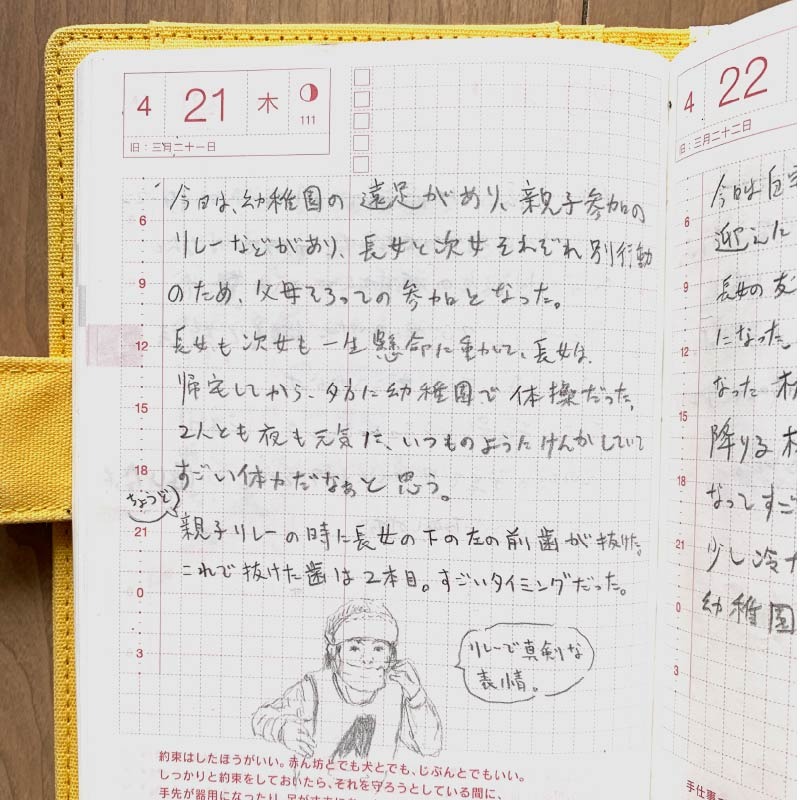 4 21 木
111
旧：三月二十一日
今日は、幼稚園の遠足があり、親子参加の
リレーなどがあり、長女と次女それぞれ別行動
のため、父母そろっての参加となった。
長女も次女も一生懸命に動いて、長女は、
帰宅してから、夕方に幼稚園で体操だった。
2人とも夜も元気に、いつものようにけんかしていて
すごい体力だなぁと思う。
ちょうど
親子リレーの時に長女の下の左の前歯が抜けた。
これで抜けた歯は2本目。すごいタイミングだった。
リレーで真剣な
表情。
6
9
12
15
18
21
0
3
約束はしたほうがいい。赤ん坊とでも犬とでも、じぶんとでもいい。
しっかりと約束をしておいたら、それを守ろうとしている間に、
手先が器用になったり、足が
4 22
旧：三月二十二日
今日は自宅
迎えに
長女の友
になった。
なった
降りる
なってすご
少し冷
幼稚園
6
9
12
15
18
21
0
3
手仕事